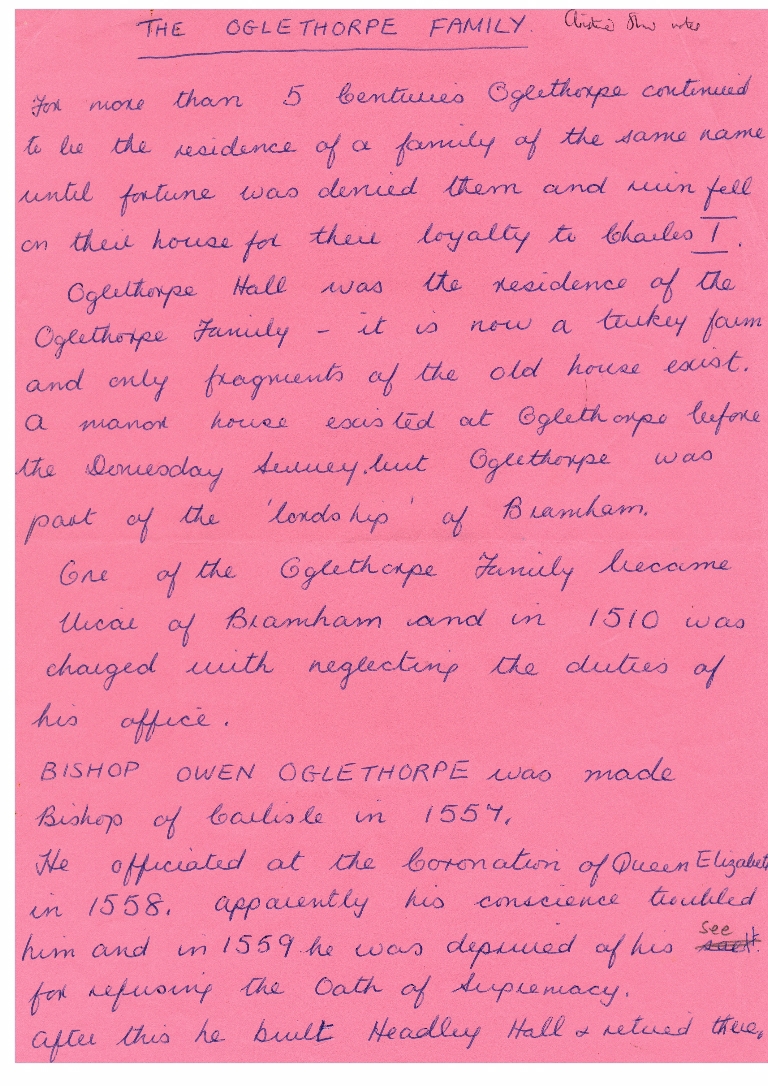 THE OGLETHORPE FAMILY. notes
For more than 5 Centuries Oglethorpe continued
to be the residence of a family of the same name
until fortune was denied them and ruin fell
on their house for their loyalty to Charles I.
Oglethorpe Hall was the residence of the
Oglethorpe Family - it is now a turkey farm
and only fragments of the old house exist.
A manor house existed at Oglethorpe before
the Domesday Survey, but Oglethorpe was
part of the 'lordship' of Bramham.
One of the Oglethorpe Family became
Vicar of Bramham and in 1510 was
charged with neglecting the duties of
his office.
BISHOP OWEN OGLETHORPE was made
Bishop of Carlisle in 1557.
He officiated at the Coronation of Queen Elizabeth
in 1558. apparently his conscience troubled
him and in 1559 he was deprived of his see
for refusing the Oath of Supremacy.
After this he built Headley Hall & retired there.